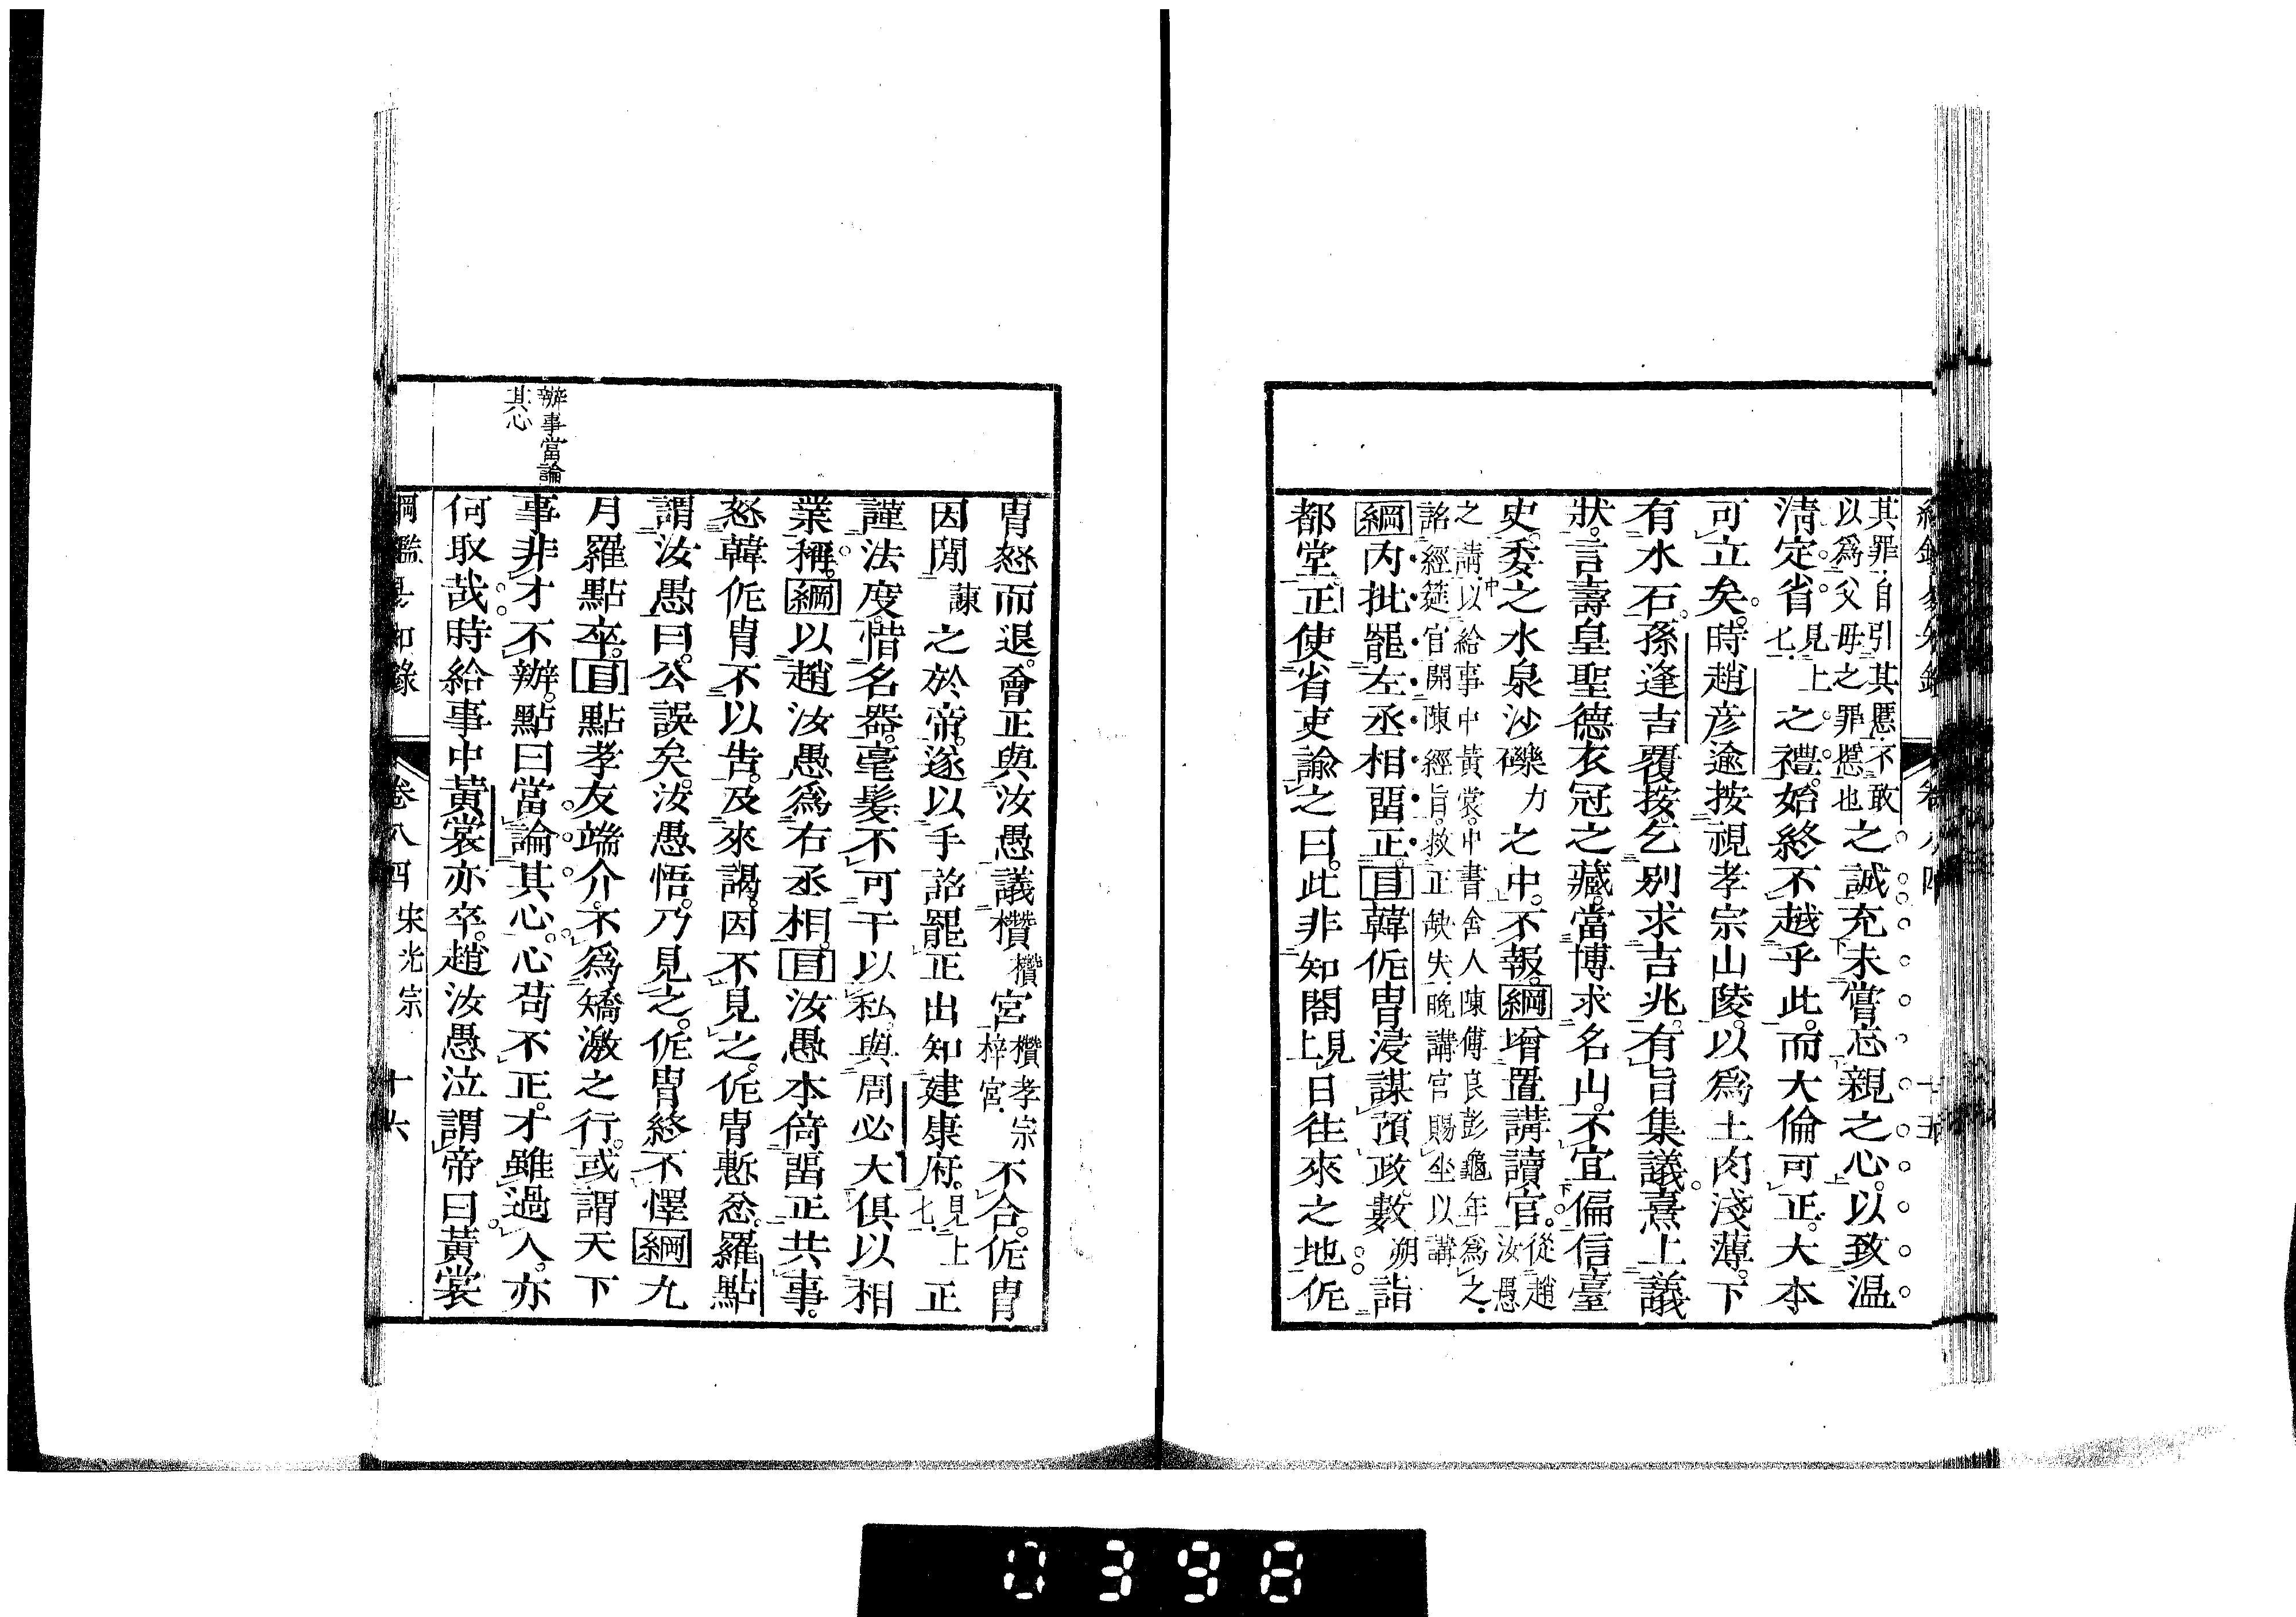 其罪自引其慝不敢
以爲父母之罪慝也
之誠充未嘗忘親之心以致温
凊定省見上七之禮始終不越乎此而大倫可正大本
可立矣時趙彦逾按視孝宗山陵以爲土肉淺薄下
有水石孫逢吉覆按乞别求吉兆有旨集議熹上議
狀言壽皇聖德衣冠之藏當博求名山不宜偏信臺
史委之水泉沙礫力之中不報綱增置講讀官從趙汝愚
之請以給事中黄裳中書舍人陳傅良彭龜年爲之
詔經筵官開陳經旨救正缺失晩講官賜坐以講
綱内批罷左丞相畱正目韓侂胄浸謀預政數朔詣
都堂正使省吏諭之曰此非知閤見上日往來之地侂
胄怒而退會正與汝愚議欑欑宮欑孝宗梓宮不合侂胄
因閒諫之於帝遂以手詔罷正出知建康府見上七正
謹法度惜名器毫髮不可干以私與周必大俱以相
業稱綱以趙汝愚爲右丞相目汝愚本倚畱正共事
怒韓侂胄不以告及來謁因不見之侂胄慙忿羅點
謂汝愚曰公誤矣汝愚悟乃見之侂胄終不懌綱九
月羅點卒目點孝友端介不爲矯激之行或謂天下
事非才不辦點曰當論其心心苟不正才雖過人亦
何取哉時給事中黄裳亦卒趙汝愚泣謂帝曰黄裳
辦事當論
其心
綱鑑易知錄 卷八四 宋光宗 十六
0398